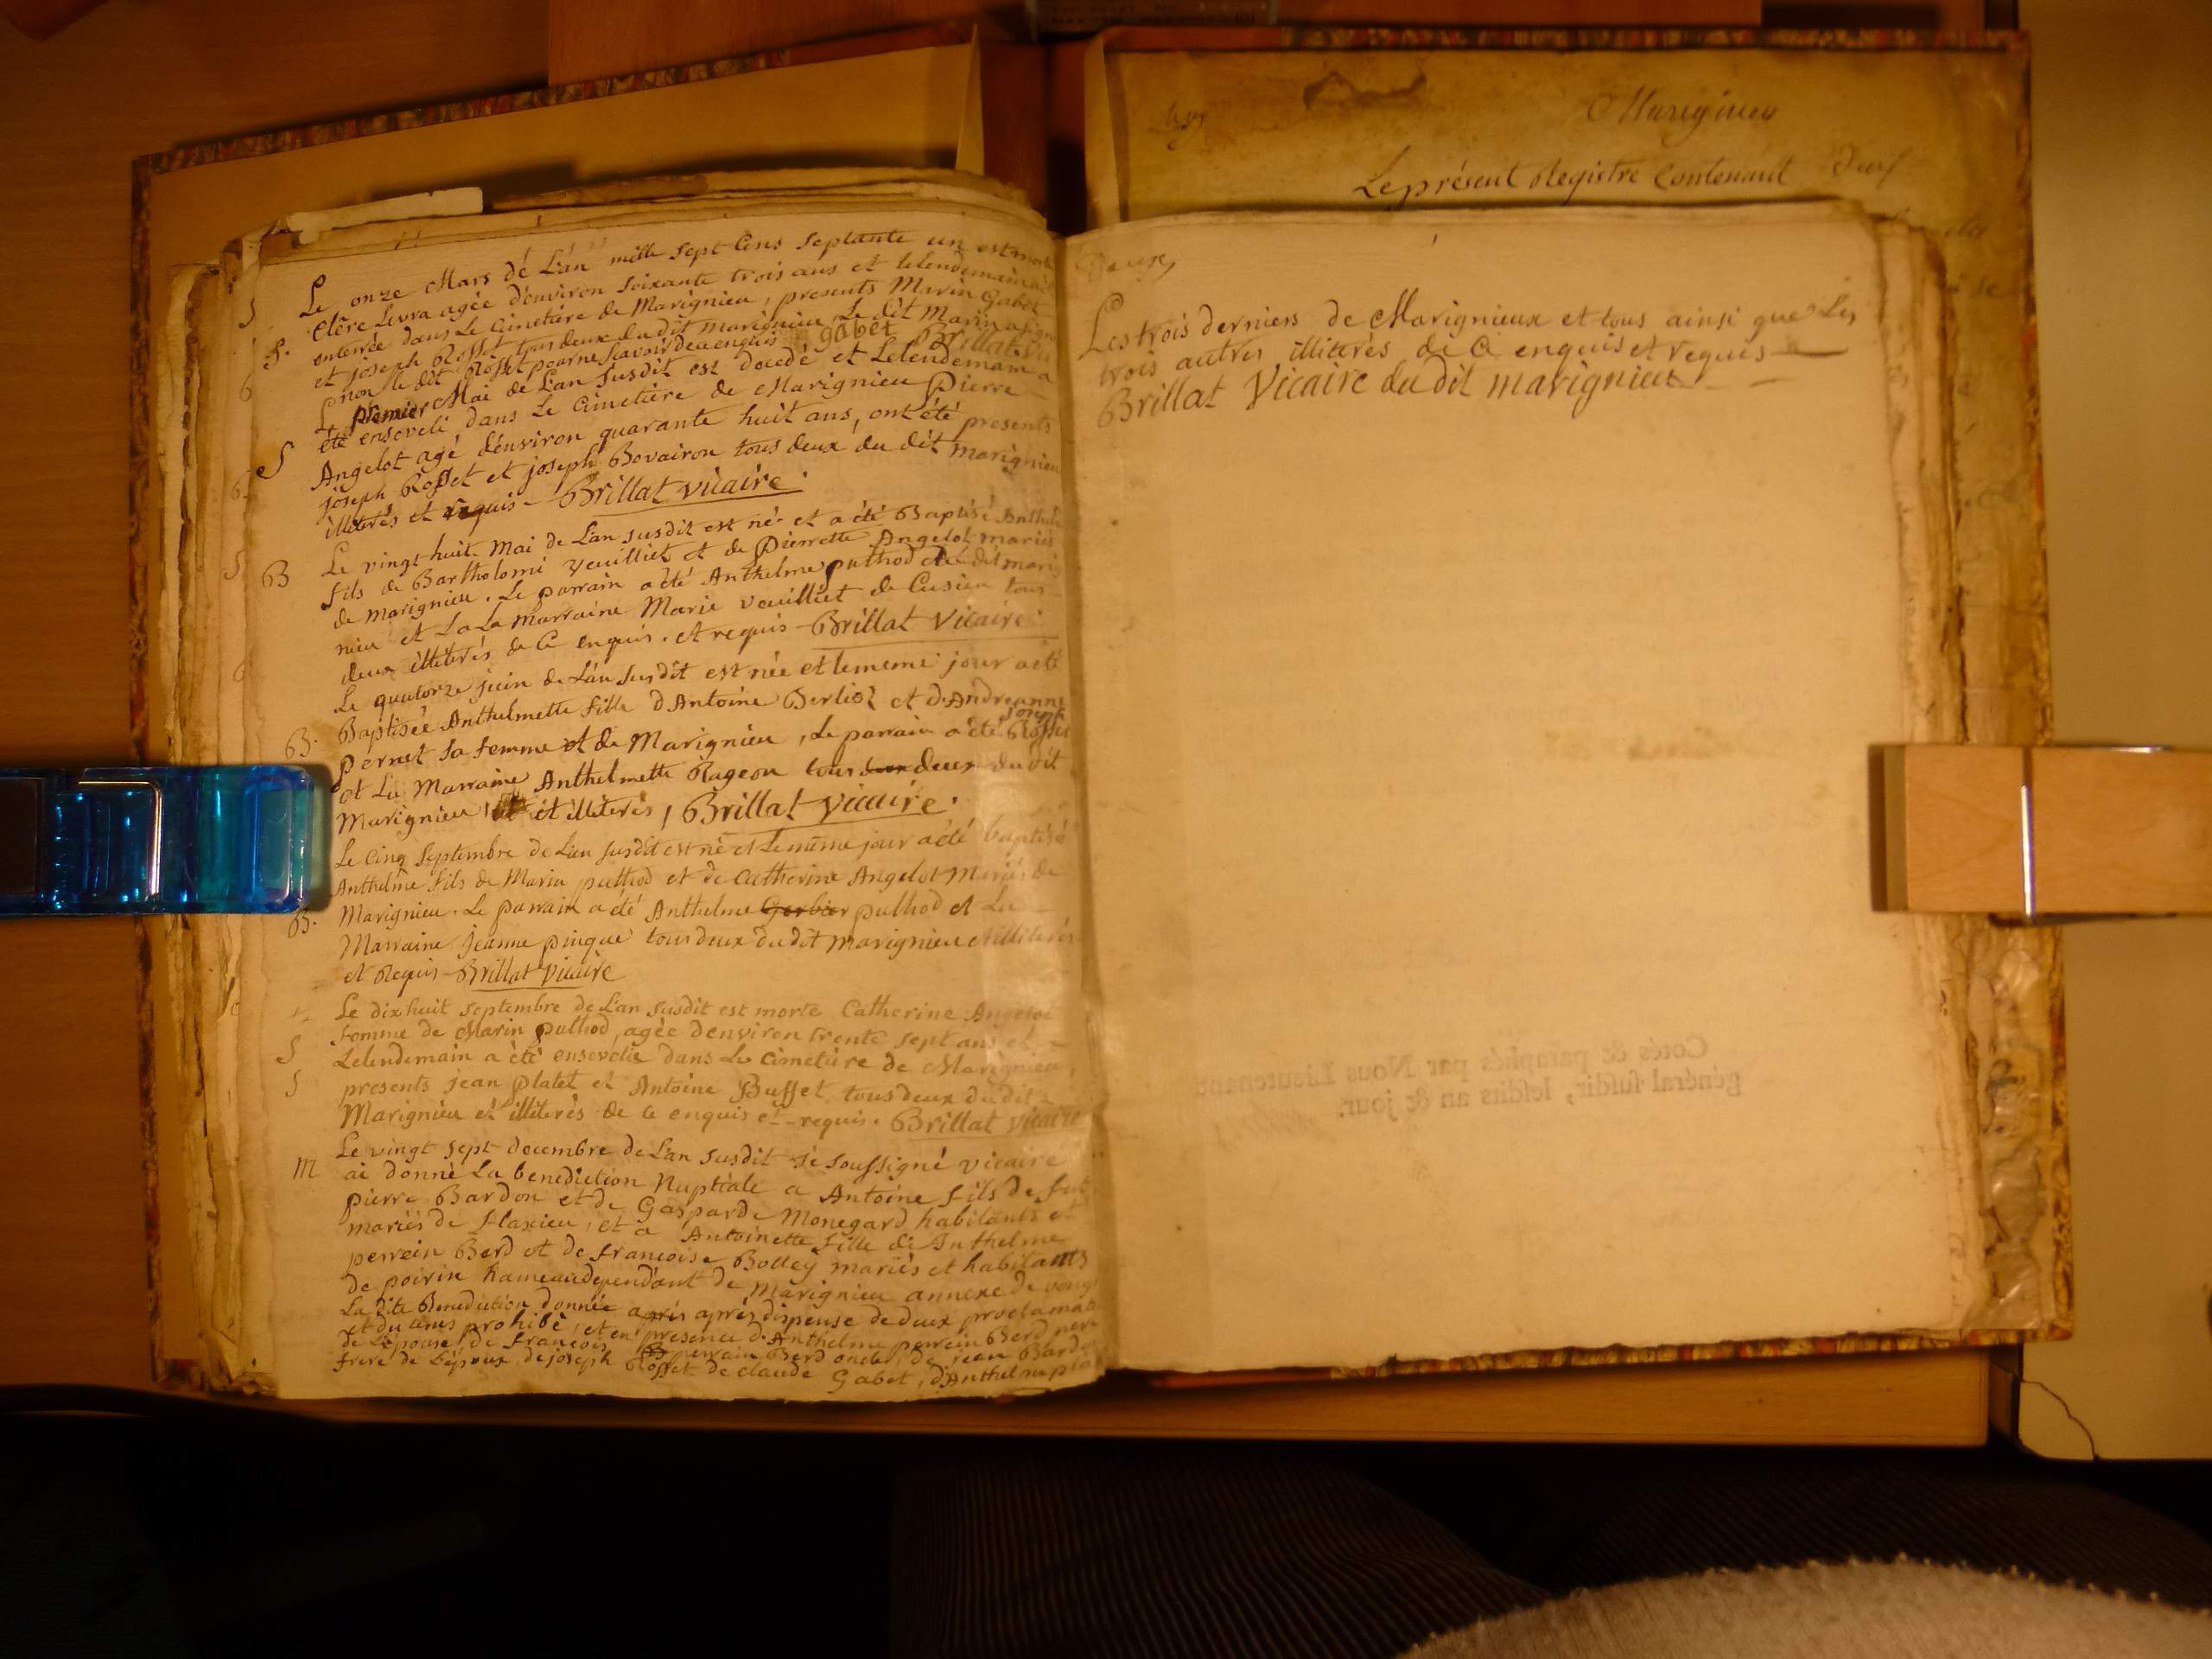 S Le onze Mars de L'an mille sept Cens septante un est morte
Clère Levra agée d'environ soixante trois ans et lelendemain a
enterrée dans Le Cimetière de Marignieu, presents Marin Gabet
et joseph Rosset tous deux du dit marignieu Le dit Marin a signé
non le dit Rosset pour ne sçavoir de ce enquis gabet Brillat
Le premier Mai de L'an susdit est decedé et Lelendemain a
été enseveli dans Le Cimetière de Marignieu Pierre
S Angelot agé d'environ quarante huit ans, ont été presents
joseph Rosset et joseph Bovairon tous deux du dit marignieu
illiterés et requis - Brillat vicaire.
B Le vingt huit Mai de L'an susdit est né et a été Baptisé Anthelme
fils de Bartholomé veuilliet et de Pierrette Angelot mariés
de marignieu. Le parrain a été Anthelme puthod de dit marig
nieu et La La marraine Marie veuilliet de Cusieu tous
deux illiterés de Ce enquis. et requis - Brillat Vicaire
Le quatorze juin de L'an susdit est née et lememe jour a été
B. Baptisée Anthelmette fille d'Antoine Berlioz et d'Andreanne
joseph
pernet sa femme et de Marignieu, Le parrain a été Rosset
et La Marraine Anthelmette Rageon tous deux deux du dit
Marignieu, et illiterés, Brillat Vicaire.
Le Cinq Septembre de L'an susdit est né et Le même jour a été baptisé
Anthelme fils de Marin puthod et de Catherine Angelot Mariés de
B. Marignieu. Le parrain a été Anthelme Gerbier puthod et La
Marraine jeanne pingue tous deux du dit marignieu et illiterés
et Requis - Brillat Vicaire
Le dix huit Septembre de L'an susdit est morte Catherine Angelot
femme de Marin puthod, agée denviron trente sept ans et
S Lelendemain a été ensevelie dans Le Cimetière de Marignieu,
S presents jean Platet et Antoine Buffet tous deux du dit
Marignieu et illiterés de ce enquis et - requis. Brillat Vicaire
Le vingt sept decembre de L'an susdit je soussigné vicaire
M ai donné La benediction Nuptiale a Antoine fils de feu
pierre Bardon et de Gasparde Monegard habitants et
mariés de flaxieu, et a Antoinette fille d'Anthelme
perrein Berd et de francoise Bolley mariés et habitants
de poirin hameau dependant de Marignieu annexe de vongn
La dite Benediction donnée après après dispense de deux proclamat
et du tems prohibé, et en presence d'Anthelme perrein Berd pere
de L'epouse, de francois perrein Berd oncle, de jean Bardon
frere de L'epoux, de joseph Rosset de claude Gabet, d'Anthelme pla
Deuxe
Les trois derniers de Marignieux et tous ainsi que Les
trois autres illiterés de Ce enquis et requis
Brillat Vicaire du dit marignieu
Marignieu
Le présent Registre Contenant Deux
Cotés & paraphés par Nous Lieutenant
général susdit, lesdits an & jour.